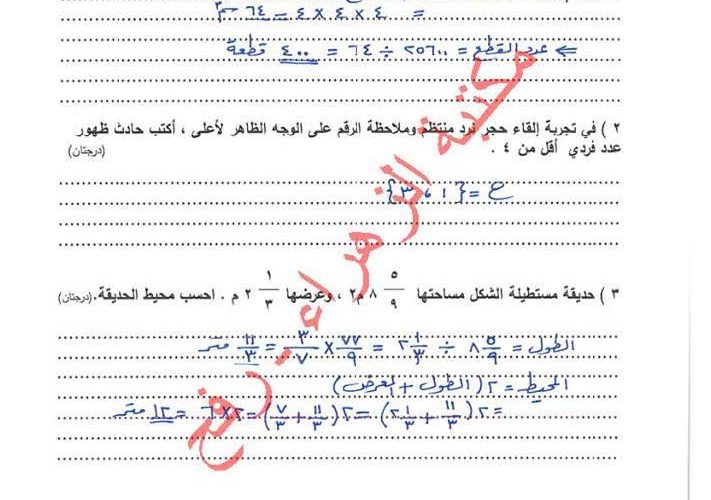 = ٤ × ٤ × ٤ = ٦٤ سم٣
⇐ عدد القطع = ٢٥٦٠٠ ÷ ٦٤ = ٤٠٠ قطعة
٢ ) في تجربة إلقاء حجر نرد منتظم وملاحظة الرقم على الوجه الظاهر لأعلى ، أكتب حادث ظهور
عدد فردي أقل من ٤ . (درجتان)
ح = {١ ، ٣}
٣ ) حديقة مستطيلة الشكل مساحتها ٥/٩ ٨ م٢ ، وعرضها ١/٣ ٢ م . احسب محيط الحديقة. (درجتان)
الطول = ٨ ٥/٩ ÷ ٢ ١/٣ = ٧٧/٩ × ٣/٧ = ١١/٣ متر
المحيط = ٢ (الطول + العرض)
= ٢ (١١/٣ + ٢ ١/٣) = ٢ (١١/٣ + ٧/٣) = ٢ × ٦ = ١٢ متر
مكتبة الزهراء - رفح